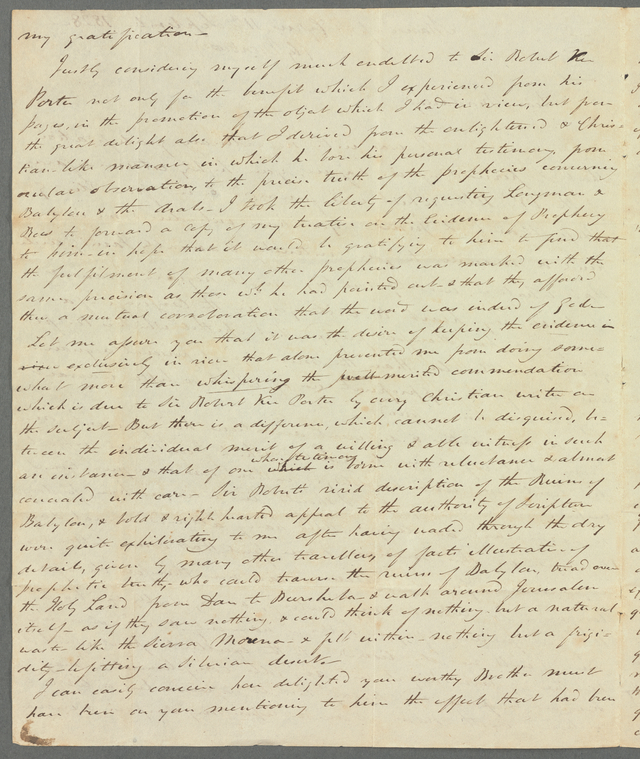 my gratification—
Justly considering myself much indebted to Sir Robert Ker
Porter not only for the benefit which I experienced from his
pages, in the promotion of the object which I had in view, but from
the great delight also that I derived from the enlightened & Chris-
tian-like manner in which he bore his personal testimony, from
ocular observation, to the precise truth of the prophecies concerning
Babylon & the Arabs— I took the liberty of requesting Longman &
Rees to forward a copy of my treatise on the Evidence of Prophecy
to him—in hope that it would be gratifying to him to find that
the fulfilment of many other prophecies was marked with the
same precision as those wh. he had pointed out— & that they afford
thus a mutual corroboration that the word was indeed of God—
Let me assure you that it was the desire of keeping the evidence in
view exclusively in view that alone prevented me from doing some-
what more than whispering the merited commendation
which is due to Sir Robert Ker Porter by every Christian writer on
the subject— But there is a difference, which cannot be disguised, be-
tween the individual merit of a willing & able witness in such
an instance— & that of one whose testimony which is borne with reluctance & almost
concealed with care— Sir Robert's vivid description of the Ruins of
Babylon, & bold & right hearted appeal to the authority of Scripture
were quite exhilirating to me after having waded through the dry
details, given by many other travellers, of facts illustrative of
prophetic truth— who could traverse the ruins of Babylon, tread over
the Holy Land from Dan to Beersheba— & walk around Jerusalem
itself— as if they saw nothing, & could think of nothing but a natural
waste like the Sierra Morena— & felt within nothing but a frigi-
dity befitting a Siberian desert—
I can easily conceive how delighted your worthy Brother must
have been on your mentioning to him the effect that had been